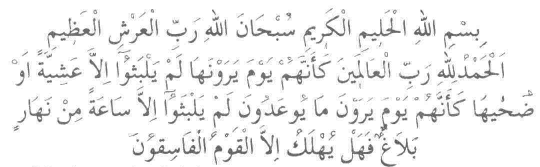 بِسْمِ اللهِ الْحَلِيمِ الْكَرِيمِ سُبْحَانَ اللهِ رَبِّ الْعَرْشِ الْعَظِيمِ
اَلْحَمْدُلِلهِ رَبِّ الْعَالَمِينَ كَأَنَّهُمْ يَوْمَ يَرَوْنَهَا لَمْ يَلْبَثُوٓا اِلاَّ عَشِيَّةً اَوْ
ضُحٰيهَا كَأَنَّهُمْ يَوْمَ يَرَوْنَ مَا يُوعَدُونَ لَمْ يَلْبَثُوٓا اِلاَّ سَاعَةً مِنْ نَهَارٍ
بَلَاغٌ فَهَلْ يُهْلَكُ اِلاَّ الْقَوْمُ الْفَاسِقُونَ